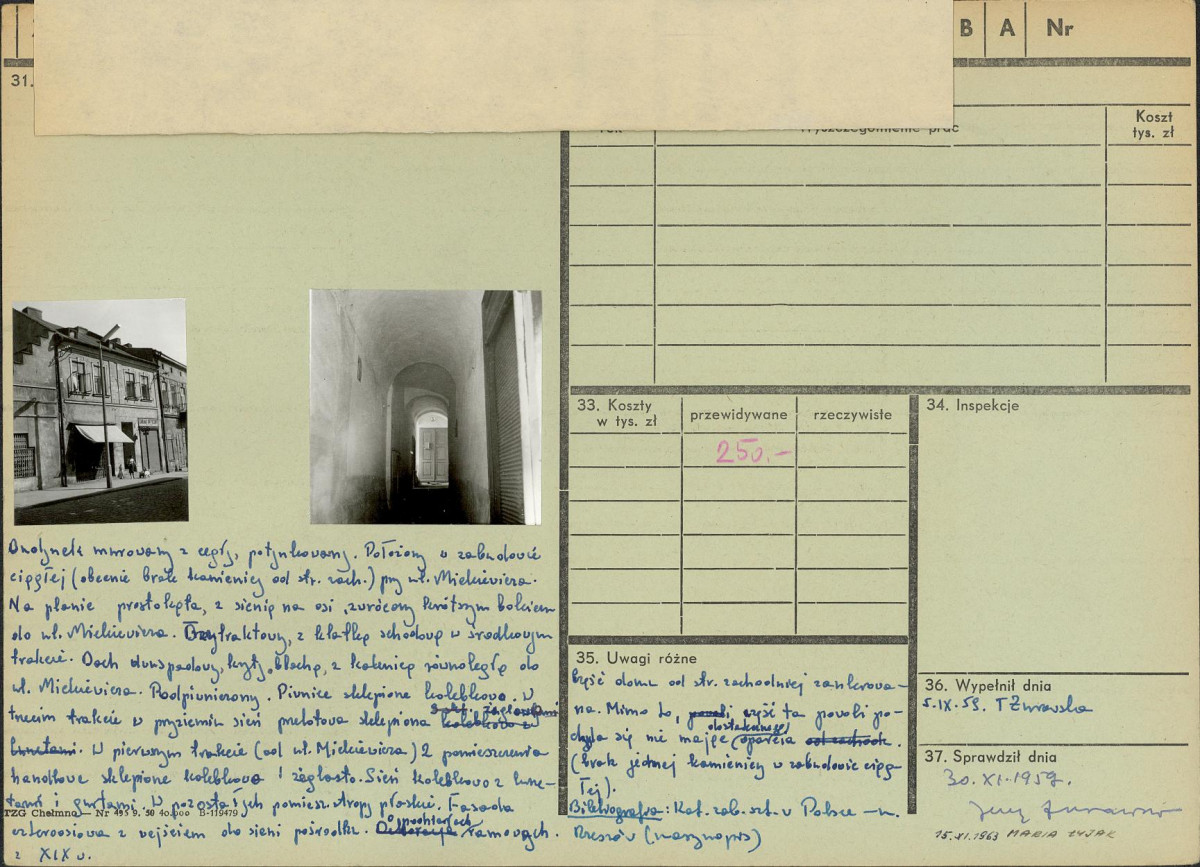 B A Nr
31.
Wyszczególnienie prac
Koszt
tys. zł
33. Koszty
w tys. zł
przewidywane
rzeczywiste
250.-
34. Inspekcje
Budynek murowany z cegły, potynkowany. Położony w zabudowie
ciągłej (obecnie brak kamienicy od str. zach.) przy ul. Mickiewicza.
Na planie prostokąta, z sienią na osi, zwrócony krótszym bokiem
do ul. Mickiewicza. Trzytraktowy, z klatką schodową w środkowym
trakcie. Dach dwuspadowy, kryty blachą, z kalenicą równoległą do
ul. Mickiewicza. Podpiwniczony. Piwnice sklepione kolebkowo. W
trzecim trakcie w przyziemiu sień przelotowa sklepiona kolebkowo z
lunetami. W pierwszym trakcie (od ul. Mickiewicza) 2 pomieszczenia
handlowe sklepione kolebkowo i żeglasto. Sień kolebkowo z lune-
tami i gurtami. W pozostałych pomiesz. stropy płaskie. Fasada
TZG Chełmno Nr 495 9. 58 40.000 B-119479
czteroosiowa z wejściem do sieni pośrodku. O podziałach ramowych.
z XIX w.
35. Uwagi różne
Część domu od str. zachodniej zankrowa-
na. Mimo to, część ta powoli po-
chyla się nie mając dostatecznego oparcia od zachodu.
(brak jednej kamienicy w zabudowie ciąg-
łej).
Bibliografia: Kat. zab. szt. w Polsce – w.
Rzeszów (maszynopis)
36. Wypełnił dnia
5.IX.59. T Żurawska
37. Sprawdził dnia
30.XI.1959.
15.XI.1963 MARIA ŁYJAK